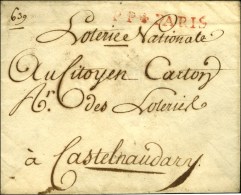 639
P. P. PARIS
Loterie Nationale
Au Citoyen Carton
Ar. des Loteries
à Castelnaudary